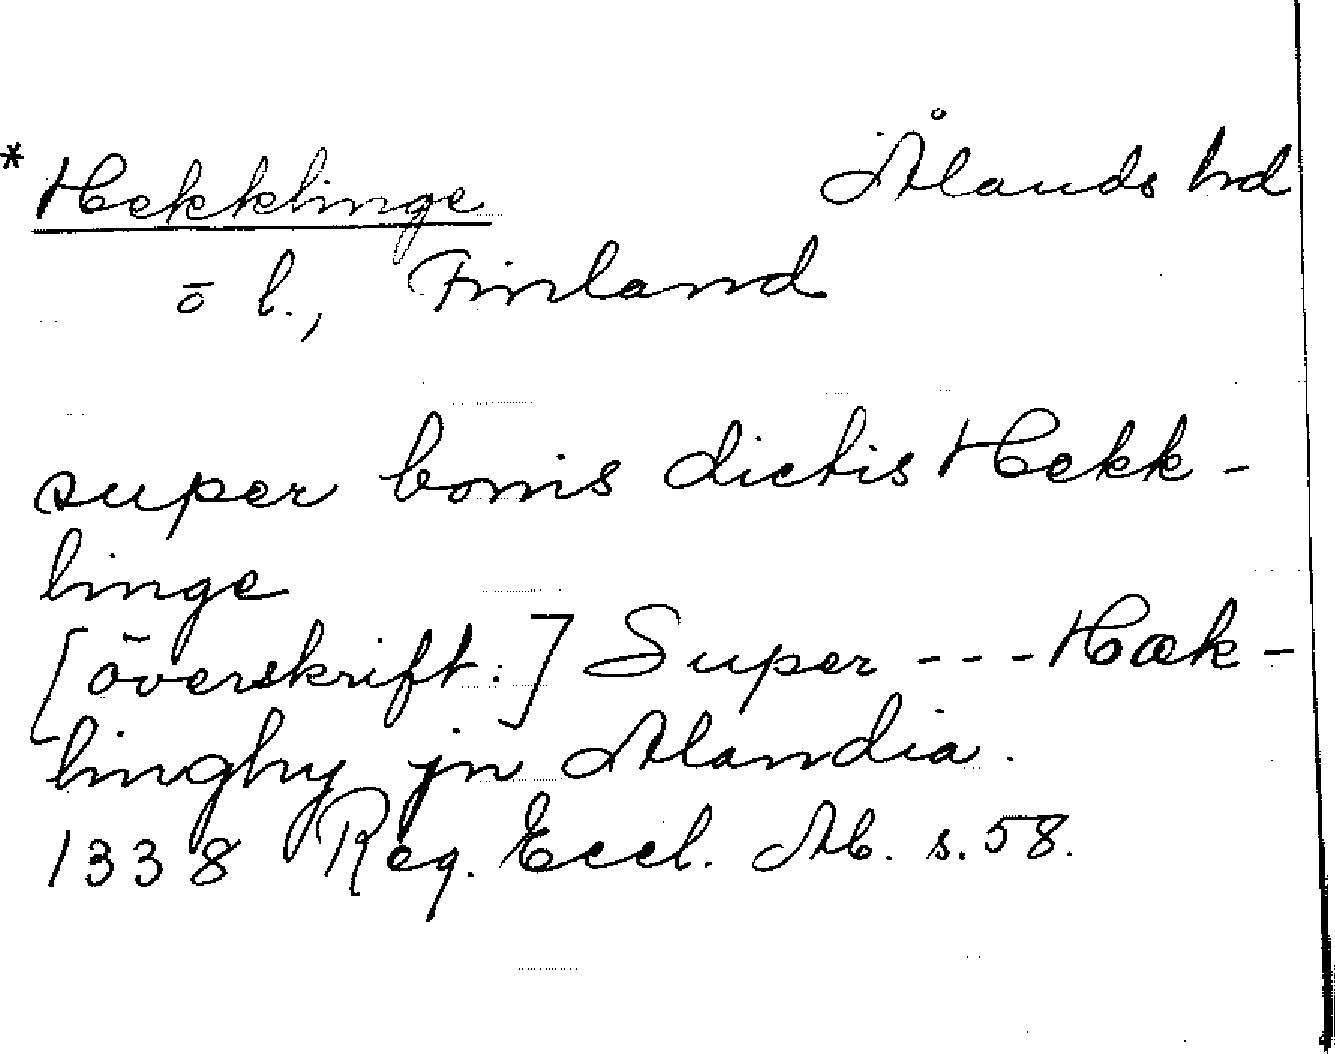 * Hekklinge Ålands hd
ō l., Finland
super bonis dictis Hekk-
linge
[överskrift:] Super --- Hæk-
linghy jn Alandia.
1338 Reg. Eccl. Ab. s. 58.